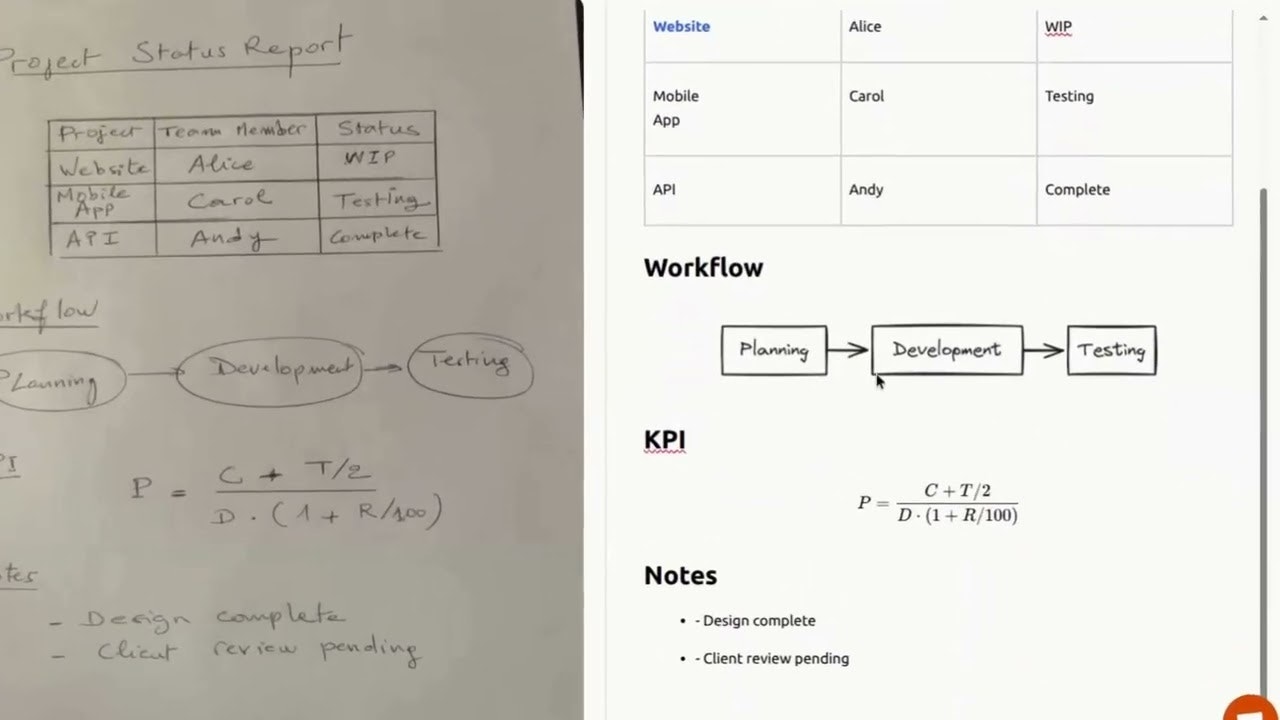 Project Status Report
Project Team Member Status
Website Alice WIP
Mobile App Carol Testing
API Andy Complete
Workflow
Planning Development Testing
P = C + T/2 / D . (1 + R/100)
- Design complete
- Client review pending
Website Alice WIP
Mobile App Carol Testing
API Andy Complete
Workflow
Planning Development Testing
KPI
P = C + T/2 / D · (1 + R/100)
Notes
• - Design complete
• - Client review pending